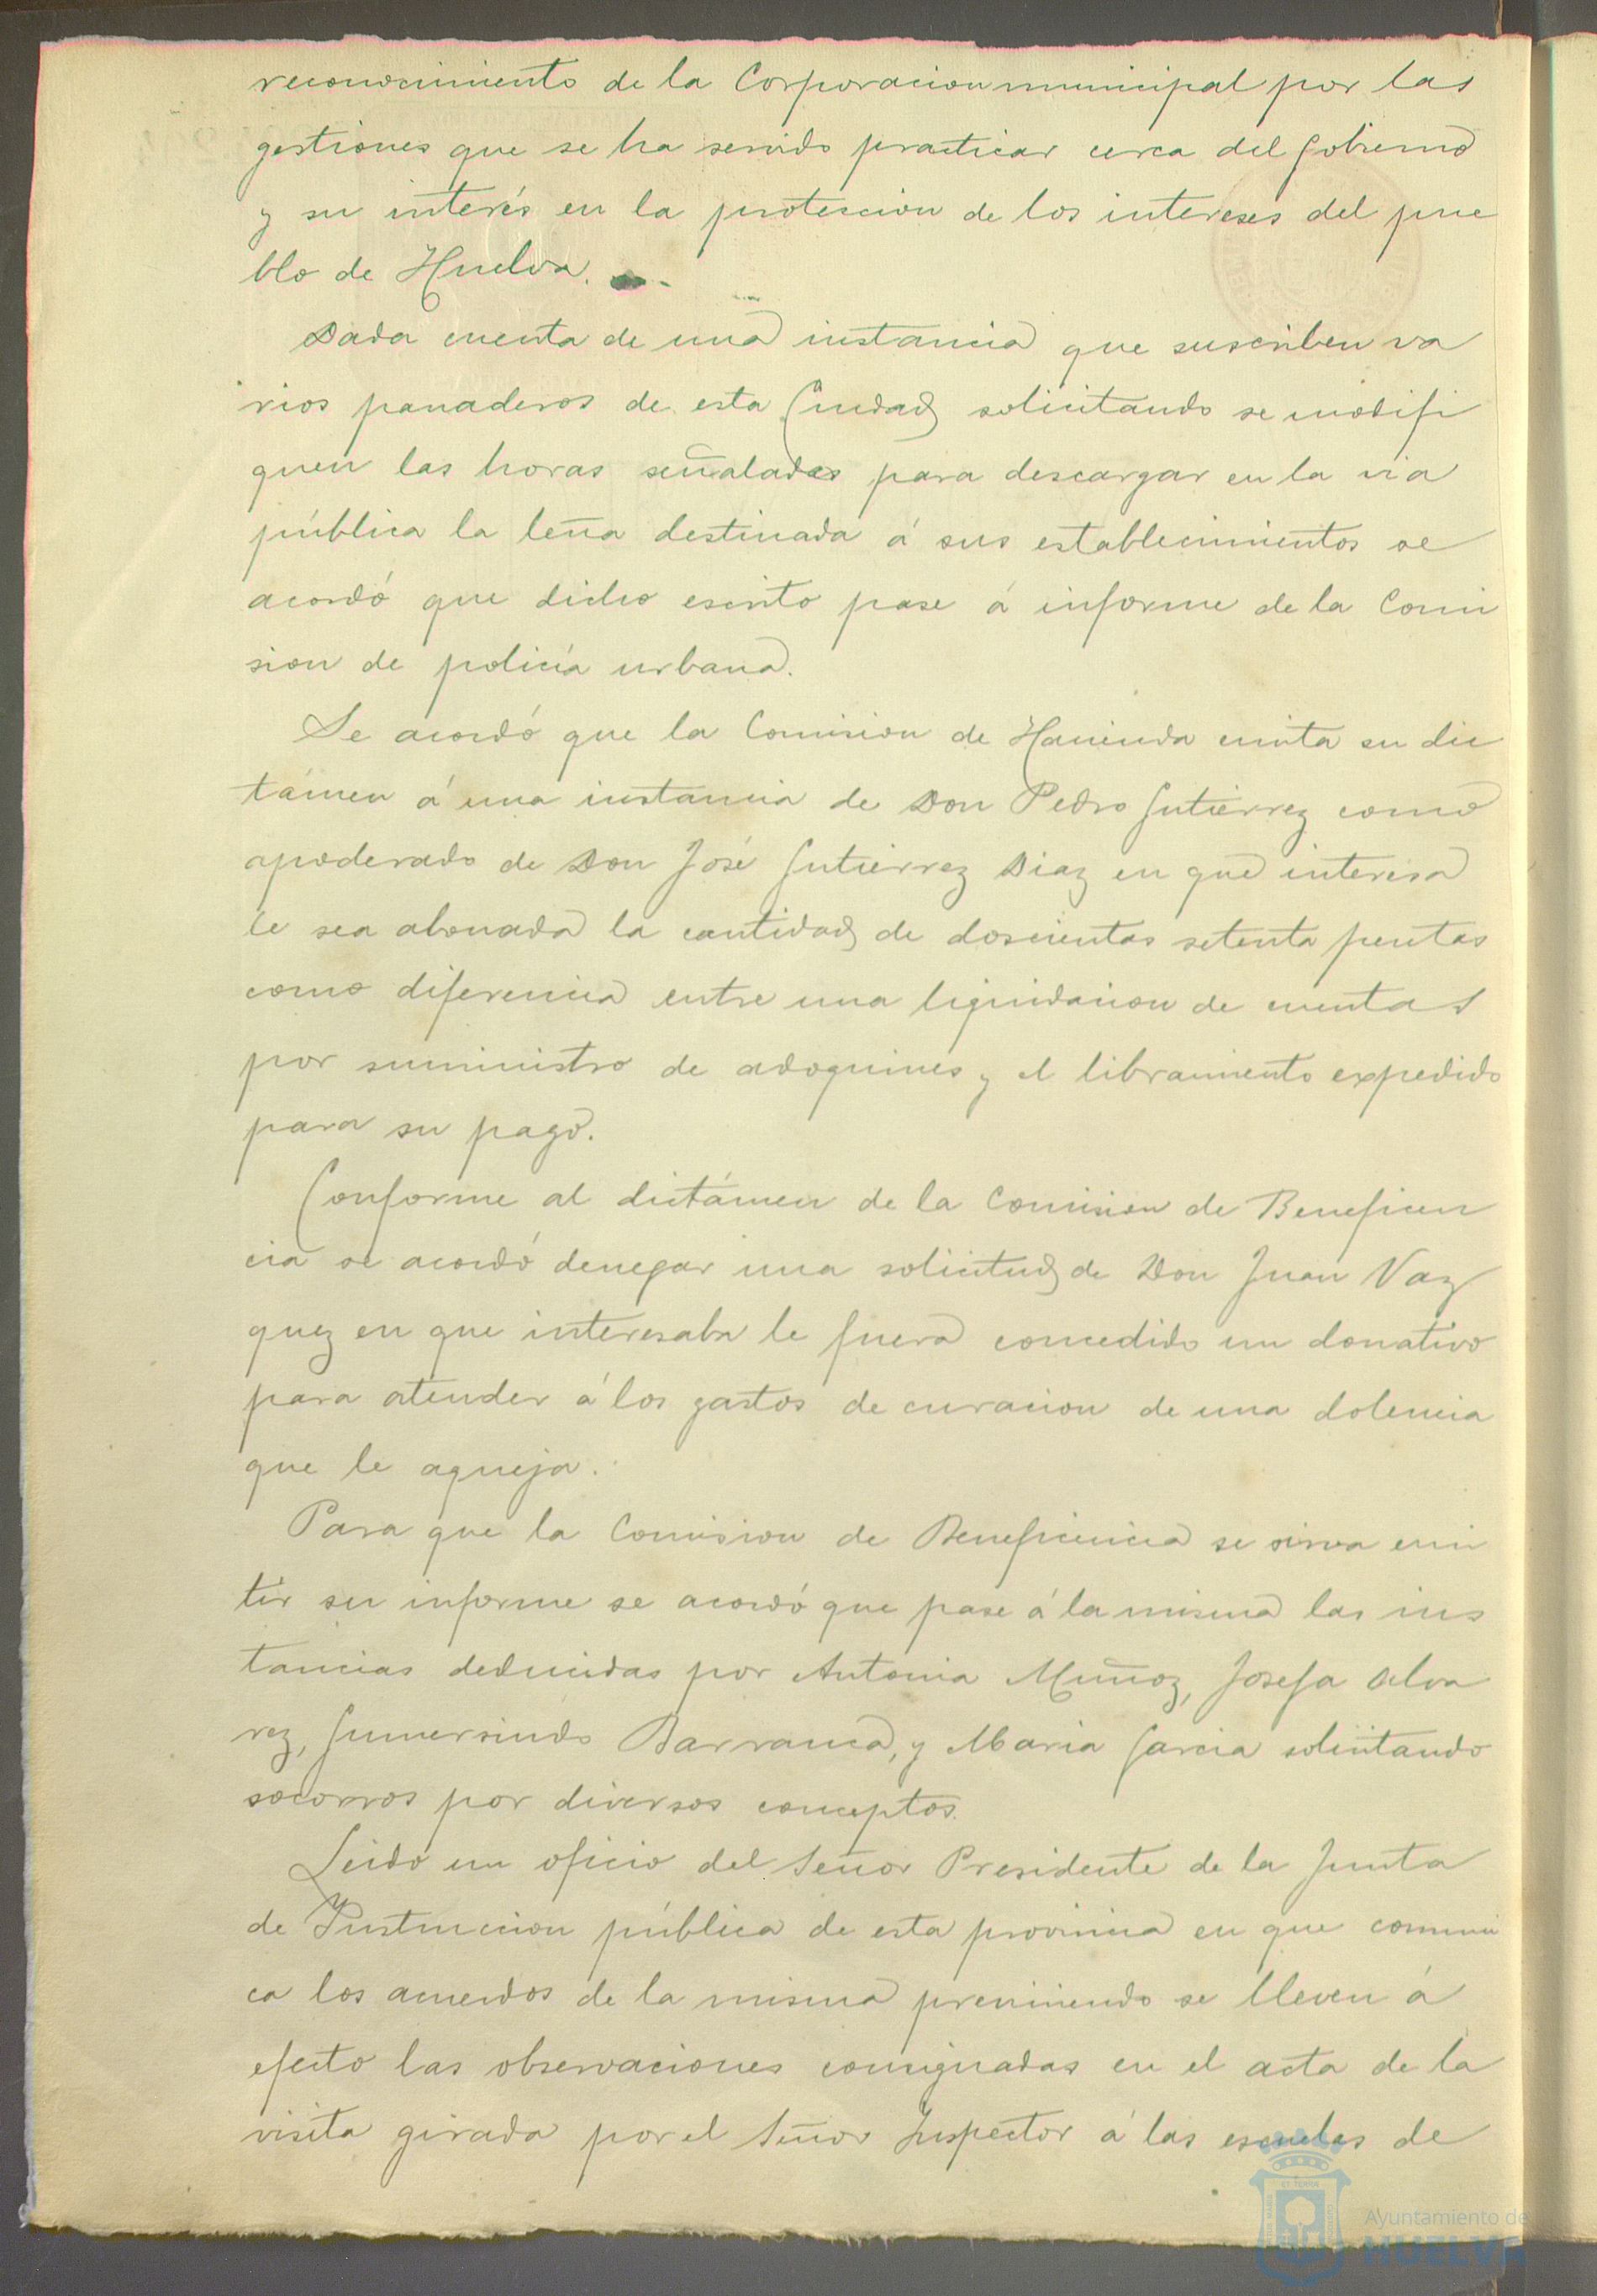 reconocimiento de la Corporacion municipal por las
gestiones que se ha servido practicar cerca del Gobierno
y su interés en la proteccion de los intereses del pue
blo de Huelva.
Dada cuenta de una instancia que suscriben va
rios panaderos de esta Ciudad solicitando se modifi
quen las horas señaladas para descargar en la via
pública la leña destinada á sus establecimientos se
acordó que dicho escrito pase á informe de la Comi
sion de policía urbana.
Se acordó que la Comision de Hacienda emita su dic
támen á una instancia de Don Pedro Gutiérrez como
apoderado de Don José Gutiérrez Diaz en que interesa
le sea abonada la cantidad de doscientas setenta pesetas
como diferencia entre una liquidacion de cuentas
por suministro de adoquines y el libramiento expedido
para su pago.
Conforme al dictámen de la Comision de Beneficen
cia se acordó denegar una solicitud de Don Juan Vaz
quez en que interesaba le fuera concedido un donativo
para atender á los gastos de curacion de una dolencia
que le aqueja.
Para que la Comision de Beneficencia se sirva emi
tir su informe se acordó que pase á la misma las ins
tancias deducidas por Antonia Muñoz, Josefa Alva
rez, Gumersindo Barranca, y Maria Garcia solicitando
socorros por diversos conceptos.
Leido un oficio del Señor Presidente de la Junta
de Instruccion pública de esta provincia en que comuni
ca los acuerdos de la misma previniendo se lleven á
efecto las observaciones consignadas en el acta de la
visita girada por el Señor Inspector á las escuelas de
Ayuntamiento de
HUELVA